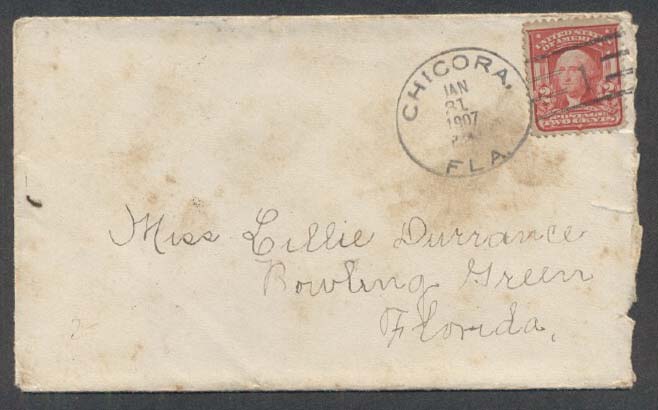 CHICORA,
JAN
31
1907
FLA.
UNITED STATES
OF AMERICA
2 2
POSTAGE
TWO CENTS
1
Miss Lillie Durrance
Bowling Green
Florida,